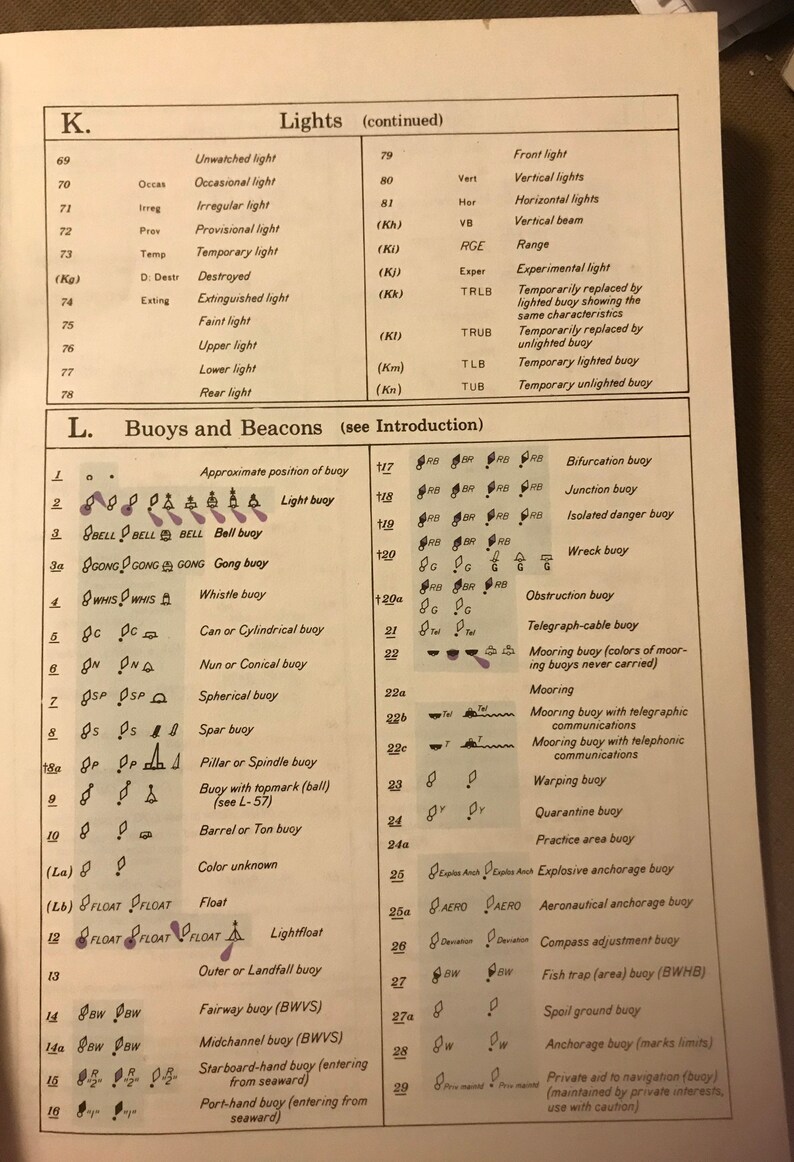 K. Lights (continued)
69 Unwatched light
70 Occas Occasional light
71 Irreg Irregular light
72 Prov Provisional light
73 Temp Temporary light
(Kg) D: Destr Destroyed
74 Exting Extinguished light
75 Faint light
76 Upper light
77 Lower light
78 Rear light
79 Front light
80 Vert Vertical lights
81 Hor Horizontal lights
(Kh) VB Vertical beam
(Ki) RGE Range
(Kj) Exper Experimental light
(Kk) TRLB Temporarily replaced by
lighted buoy showing the
same characteristics
(Kl) TRUB Temporarily replaced by
unlighted buoy
(Km) TLB Temporary lighted buoy
(Kn) TUB Temporary unlighted buoy
L. Buoys and Beacons (see Introduction)
1 Approximate position of buoy
2 Light buoy
3 BELL BELL BELL Bell buoy
3a GONG GONG GONG Gong buoy
4 WHIS WHIS Whistle buoy
5 C C Can or Cylindrical buoy
6 N N Nun or Conical buoy
7 SP SP Spherical buoy
8 S S Spar buoy
†8a P P Pillar or Spindle buoy
9 Buoy with topmark (ball)
(see L-57)
10 Barrel or Ton buoy
(La) Color unknown
(Lb) FLOAT FLOAT Float
12 FLOAT FLOAT FLOAT Lightfloat
13 Outer or Landfall buoy
14 BW BW Fairway buoy (BWVS)
14a BW BW Midchannel buoy (BWVS)
15 R "2" R "2" R "2" Starboard-hand buoy (entering
from seaward)
16 "1" "1" Port-hand buoy (entering from
seaward)
†17 RB BR RB RB Bifurcation buoy
†18 RB BR RB RB Junction buoy
†19 RB BR RB RB Isolated danger buoy
†20 RB BR RB Wreck buoy
G G G G G
†20a RB BR RB Obstruction buoy
G G
21 Tel Tel Telegraph-cable buoy
22 Mooring buoy (colors of moor-
ing buoys never carried)
22a Mooring
22b Tel Tel Mooring buoy with telegraphic
communications
22c T T Mooring buoy with telephonic
communications
23 Warping buoy
24 Y Y Quarantine buoy
24a Practice area buoy
25 Explos Anch Explos Anch Explosive anchorage buoy
25a AERO AERO Aeronautical anchorage buoy
26 Deviation Deviation Compass adjustment buoy
27 BW BW Fish trap (area) buoy (BWHB)
27a Spoil ground buoy
28 W W Anchorage buoy (marks limits)
29 Priv maintd Priv maintd Private aid to navigation (buoy)
(maintained by private interests,
use with caution)